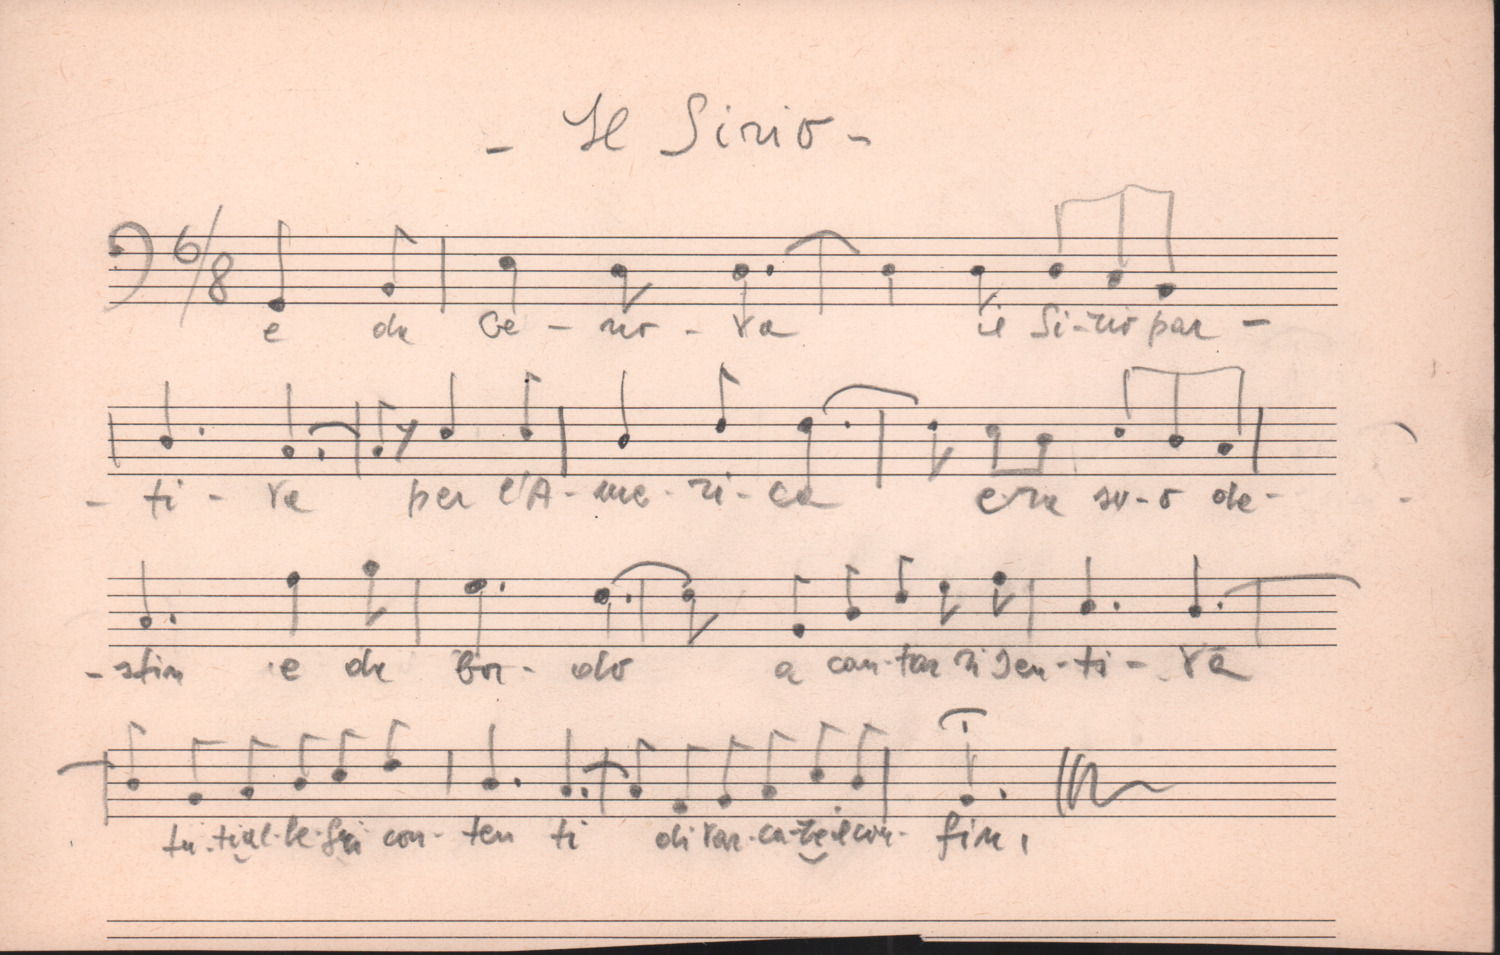 - Il Sirio -
6/8
e da Ge - no - va il Si - rio par -
- ti - va per l'A - me - ri - ca era su - o de -
- stin e da bor - do a can - tar si sen - ti - va
tu - ti al - le - gri con - ten ti di var - ca - re il con - fin,